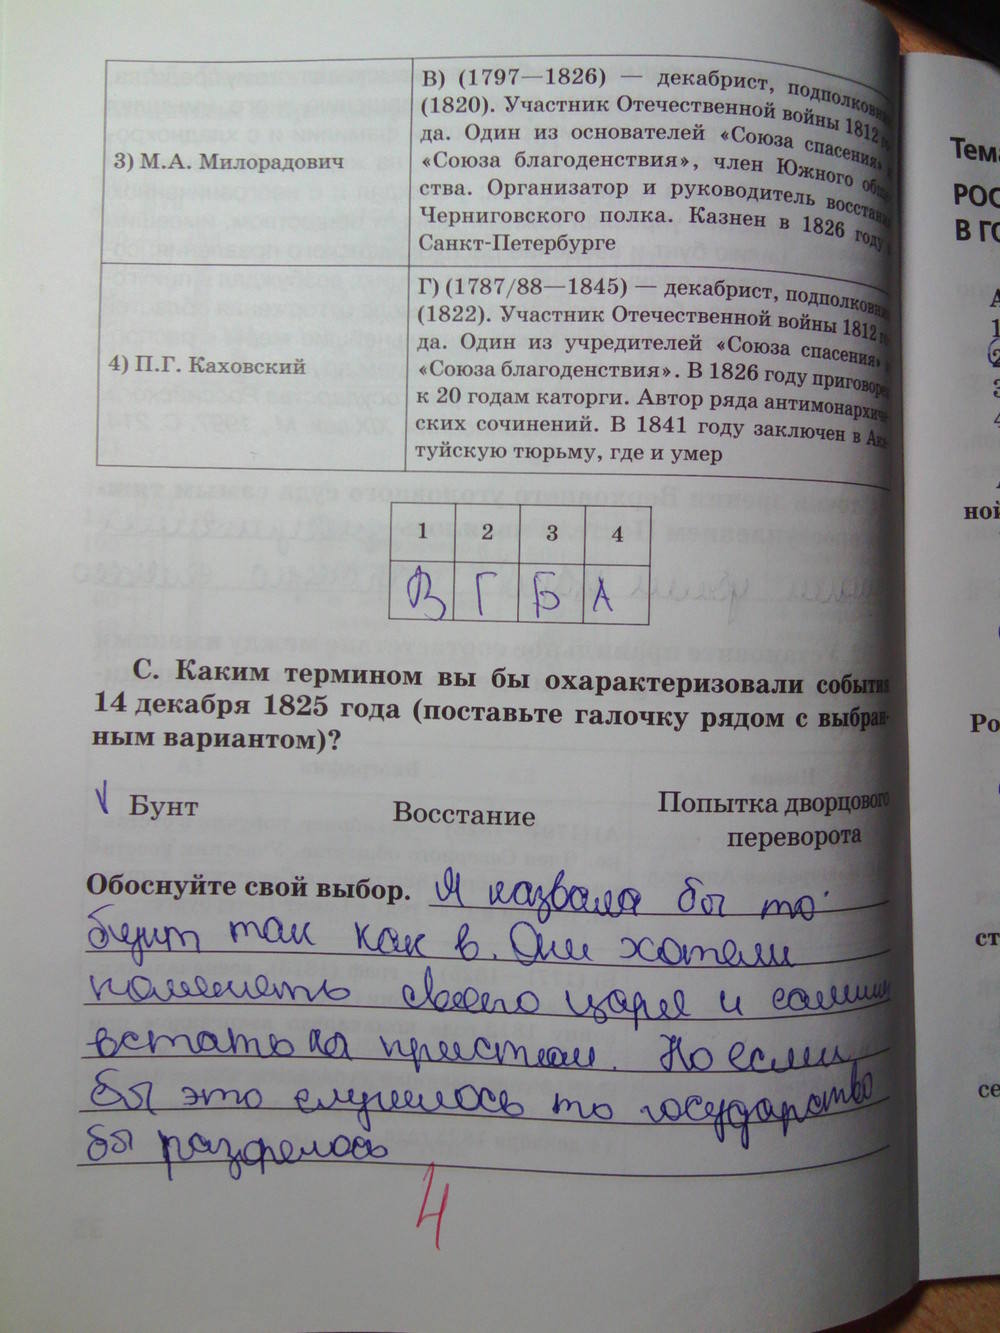 3) М.А. Милорадович
В) (1797—1826) — декабрист, подполковник
(1820). Участник Отечественной войны 1812 го-
да. Один из основателей «Союза спасения» и
«Союза благоденствия», член Южного обще-
ства. Организатор и руководитель восстания
Черниговского полка. Казнен в 1826 году в
Санкт-Петербурге
4) П.Г. Каховский
Г) (1787/88—1845) — декабрист, подполковник
(1822). Участник Отечественной войны 1812 го-
да. Один из учредителей «Союза спасения» и
«Союза благоденствия». В 1826 году приговорен
к 20 годам каторги. Автор ряда антимонархиче-
ских сочинений. В 1841 году заключен в Ака-
туйскую тюрьму, где и умер
1 2 3 4
В Г Б А
С. Каким термином вы бы охарактеризовали события
14 декабря 1825 года (поставьте галочку рядом с выбран-
ным вариантом)?
Бунт
Восстание
Попытка дворцового
переворота
Обоснуйте свой выбор. Я назвала бы то
бунт так как в. Они хотели
поменять своего царя и самим
встать на пристол. Но если
бы это случилось то государство
бы
4
Тема
РОС
В ГО
ной
Ро
ст
се